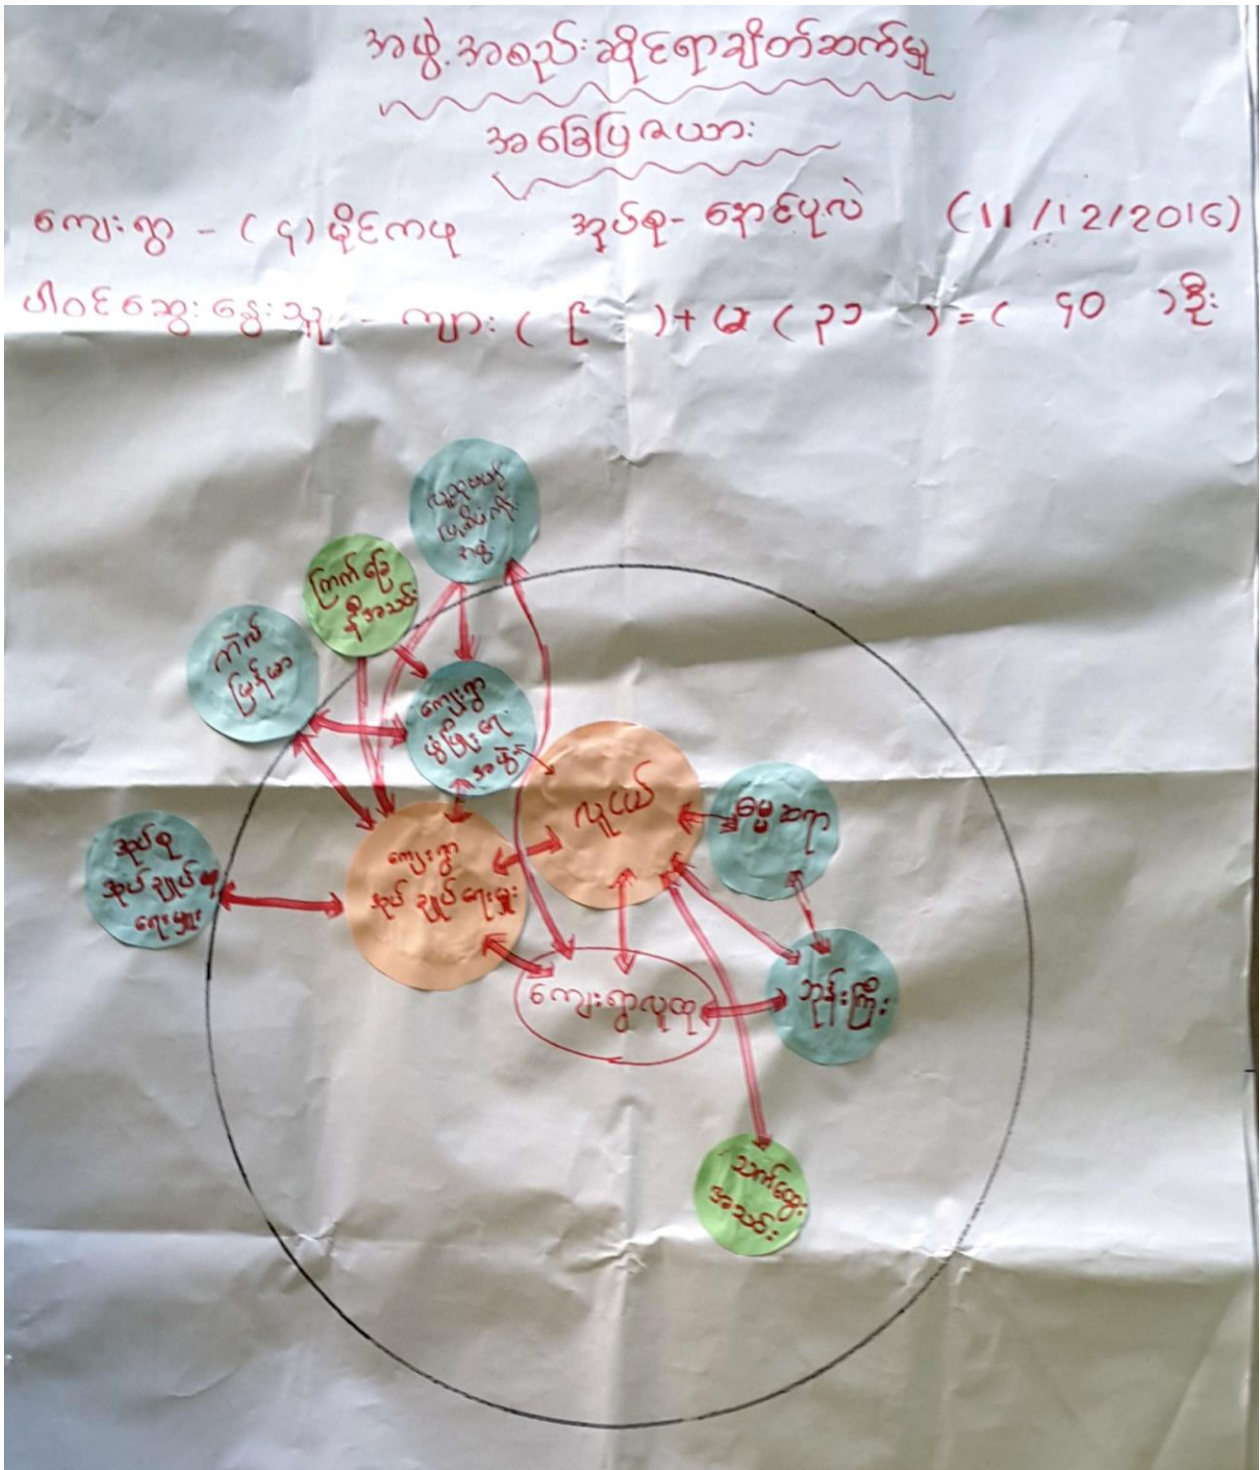 အဖွဲ့အစည်းဆိုင်ရာချိတ်ဆက်မှု
အခြေပြဇယား
ကျေးရွာ - (၄) မိုင်ကဖု အုပ်စု - နောင်ပုလဲ (11/12/2016)
ပါဝင်ဆွေးနွေးသူ - ကျား ( ၉ ) + မ ( ၃၁ ) = ( ၄၀ ) ဦး
ကြက်ခြေ
နီအသင်း
ကဲလ်
မြန်မာ
ကျေးရွာ
ဖွံဖြိုးရေး
အဖွဲ့
လူငယ်
ဓမ္မဆရာ
အုပ်စု
အုပ်ချုပ်ရေး
ရေးမှူး
ကျေးရွာ
အုပ်ချုပ်ရေးမှူး
ကျေးရွာလူထု
ဘုန်းကြီး
သက်ထွေး
အသင်း